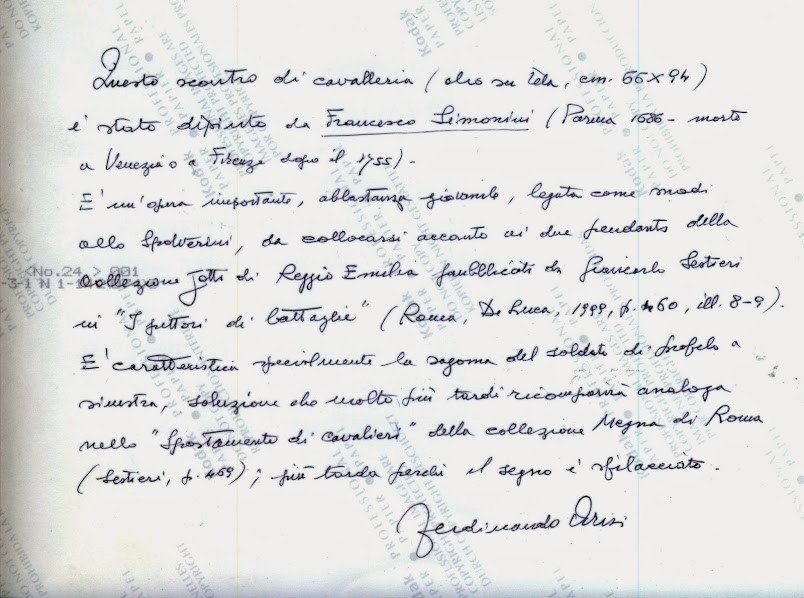 Questo scontro di cavalleria (olio su tela, cm. 66x94)
è stato dipinto da Francesco Simonini (Parma 1686 - morto
a Venezia o a Firenze dopo il 1755).
E' un'opera importante, abbastanza giovanile, legata come modi
allo Spolverini, da collocarsi accanto ai due pendants della
collezione Jotti di Reggio Emilia pubblicati da Giancarlo Sestieri
in "I pittori di battaglie" (Roma, De Luca, 1999, p. 460, ill. 8-9).
E' caratteristica specialmente la sagoma del soldato di profilo a
sinistra, soluzione che molto più tardi ricomparirà analoga
nello "Spostamento di cavalieri" della collezione Megna di Roma
(Sestieri, p. 469); più tarda perché il segno è sfilacciato.
Ferdinando Arisi
<No.24 > 001
Kodak
PROFESSIONAL
PAPER
PAPEL